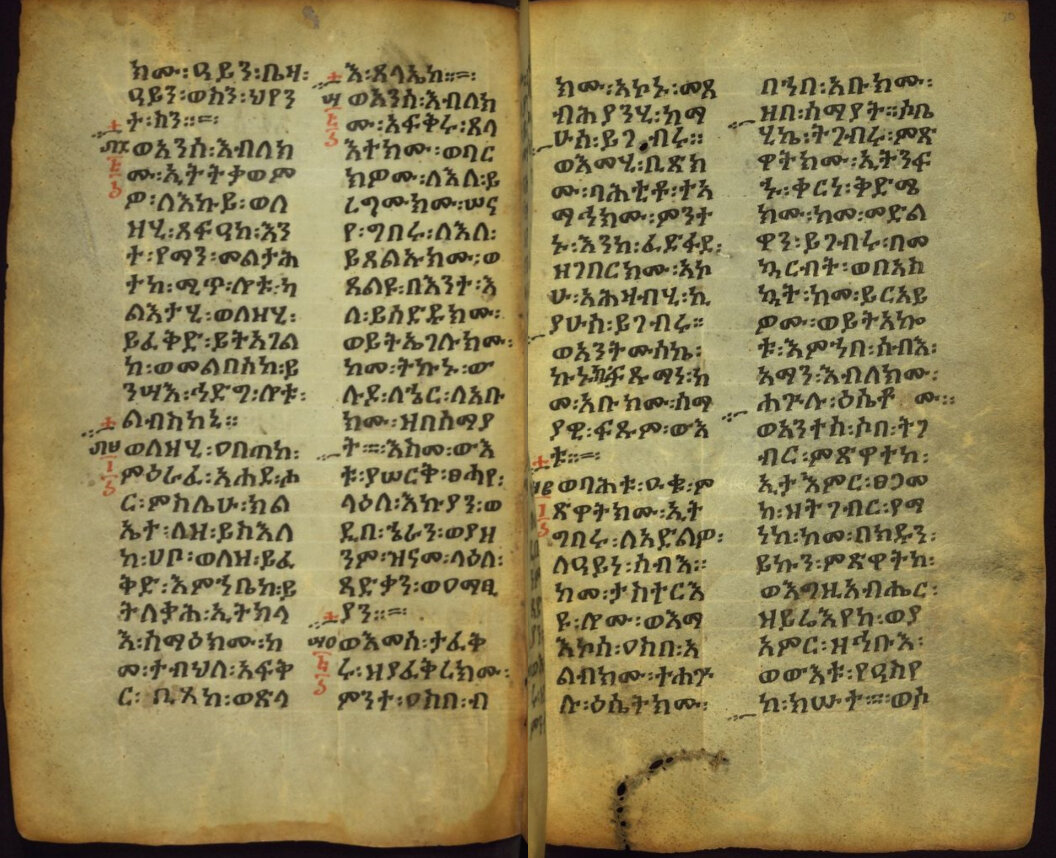 ክሙ፡ ዓይን፡ ቤዛ፡
ዓይን፡ ወስን፡ ህየን
ት፡ ስን።
ወአንሰ፡ እብለክ
ሙ፡ ኢትትቃወም
ዎ፡ ለእኩይ፡ ወለ
ዘሂ፡ ጸፍዓከ፡ እን
ተ፡ የማን፡ መልታሕ
ተከ፡ ሚጥ፡ ሎቱ፡ ካ
ልእታሂ፡ ወለዝሂ፡
ይፈቅድ፡ ይትአገል
ከ፡ ወመልበሰከ፡ ይ
ንሣእ፡ ኅድግ፡ ሎቱ፡
ልብሰከኒ።
ወለዝሂ፡ ዐበጠከ፡
ምዕራፈ፡ አሐደ፡ ሖ
ር፡ ምስሌሁ፡ ክል
ኤተ፡ ለዘ፡ ይስእለ
ከ፡ ሀቦ፡ ወለዘ፡ ይፈ
ቅድ፡ እምኀቤከ፡ ይ
ትለቃሕ፡ ኢትክላ
እ፡ ስማዕክሙ፡ ከ
መ፡ ተብህለ፡ አፍቅ
ር፡ ቢጸከ፡ ወጽላ
እ፡ ጸላኤከ።
ወአንሰ፡ እብለክ
ሙ፡ አፍቅሩ፡ ጸላ
እተክሙ፡ ወባር
ክዎሙ፡ ለእለ፡ ይ
ረግሙክሙ፡ ሠና
የ፡ ግበሩ፡ ለእለ፡
ይጸልኡክሙ፡ ወ
ጸልዩ፡ በእንተ፡ እ
ለ፡ ይሰድዱክሙ፡
ወይትኤገሉክሙ፡
ከመ፡ ትኩኑ፡ ው
ሉደ፡ ለኄር፡ ለአቡ
ክሙ፡ ዘበሰማያ
ት። እስመ፡ ውእ
ቱ፡ ያሠርቅ፡ ፀሓየ፡
ላዕለ፡ እኩያን፡ ወ
ዲበ፡ ኄራን፡ ወያዘ
ንም፡ ዝናመ፡ ላዕለ፡
ጻድቃን፡ ወዐማፂ
ያን።
ወእመሰ፡ ታፈቅ
ሩ፡ ዘያፈቅረክሙ፡
ምንተ፡ ዐስበ፡ ብ
ክሙ፡ አኮኑ፡ መጸ
ብሐያንሂ፡ ከማ
ሁሰ፡ ይገብሩ።
ወእመሂ፡ ቢጽክ
ሙ፡ ባሕቲቶ፡ ተአ
ማኅክሙ፡ ምንት
ኑ፡ እንከ፡ ፈድፋደ፡
ዘገበርክሙ፡ አኮ
ሁ፡ አሕዛብሂ፡ ኪ
ያሁሰ፡ ይገብሩ።
ወአንትሙሰኬ፡
ኩኑ፡ ፍጹማነ፡ ከ
መ፡ አቡክሙ፡ ሰማ
ያዊ፡ ፍጹም፡ ውእ
ቱ።
ወባሕቱ፡ ዑቁ፡ ም
ጽዋተክሙ፡ ኢት
ግበሩ፡ ለአድልዎ፡
ለዓይነ፡ ሰብእ።
ከመ፡ ታስተርእ
ዩ፡ ሎሙ፡ ወእማ
እኮሰ፡ ዐስበ፡ አ
ልብክሙ፡ ተሐጕ
ሉ፡ ዕሴተክሙ፡
በኀበ፡ አቡክሙ፡
ዘበ፡ ሰማያት። ሶበ
ሂኬ፡ ትገብሩ፡ ምጽ
ዋተክሙ፡ ኢትንፍ
ኁ፡ ቀርነ፡ ቅድሜ
ክሙ፡ ከመ፡ መድል
ዋን፡ ይገብሩ፡ በመ
ኳርብት፡ ወበአስ
ኳት፡ ከመ፡ ይርአይ
ዎሙ፡ ወይትአኰ
ቱ፡ እምኀበ፡ ሰብእ፡
አማን፡ እብለክሙ፡
ሐጕሉ፡ ዕሴቶሙ።
ወአንተሰ፡ ሶበ፡ ትገ
ብር፡ ምጽዋተከ፡
ኢታእምር፡ ፀጋመ
ከ፡ ዘትገብር፡ የማ
ንከ፡ ከመ፡ በክዱን፡
ይኩን፡ ምጽዋትከ፡
ወእግዚአብሔር፡
ዘይሬእየከ፡ ወያ
አምር፡ ዘኅቡእ፡
ወውእቱ፡ የዓስየ
ከ፡ ክሡተ። ወሶ